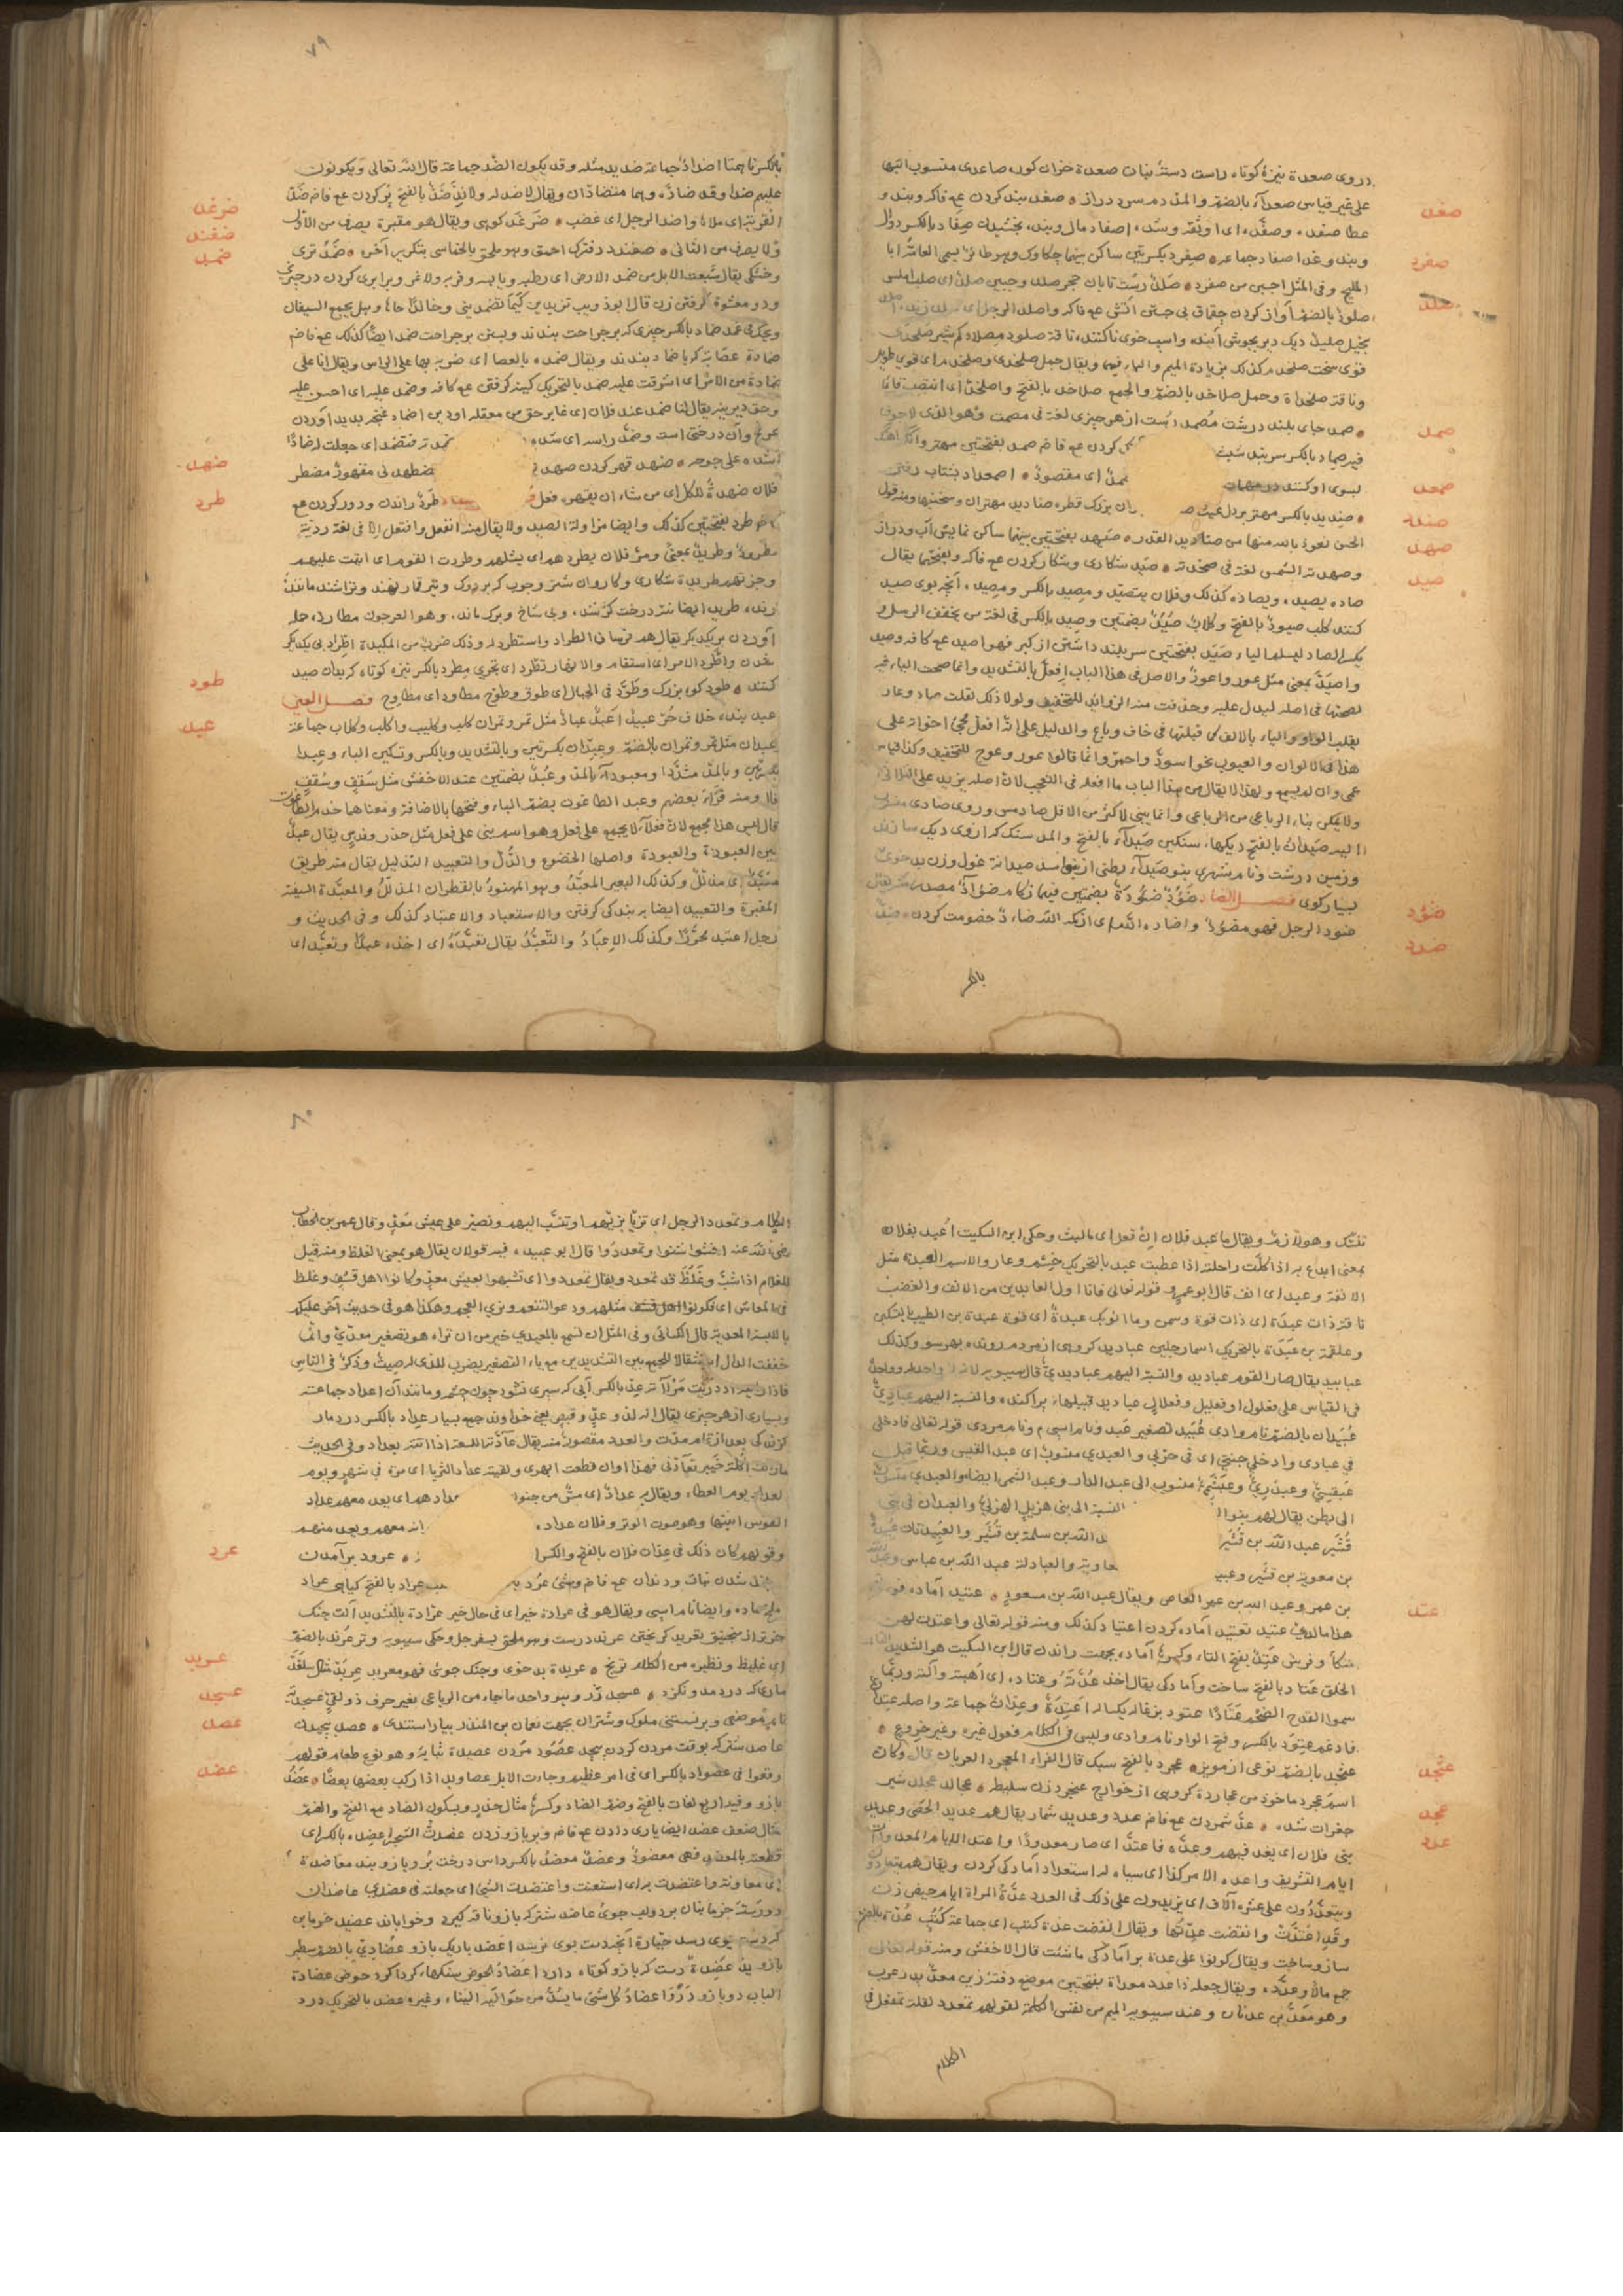 در وی صعدة نیزۀ کوتاه راست رسته بنات صعدة خران کوره صاعدی منسوب الیها
علی غیر قیاس صعداء بالضم والمد دم سرد دراز صفد بند کردن مع فاکر وبند و
عطا صفده وصفده ای اوثقه وشده اصفاد مال وبند بخشیدن صفاد بالکسر دوال
وبند وغدا اصفاد جماعه صفرد بکسرتین ساکن بینهما چکاوک وهو طائر یسمی العامة ابا
الملیح وفی المثل اجبن من صفرد صلد زمین تابان حجر صلد وجبین صلد ای صلب املس
صلود بالضم آواز کردن چقماق بی جستن آتش مع فاکر واصلد الرجل ای صلد زنده
بخیل صلید دیک دیر بجوش آینده واسپ خوی ناکننده ناقة صلود مصلاد کم شیر صلخدی
قوی سخت صلخد کذلک بزیادة المیم والهاء فیهما ویقال جمل صلخدی وصلخدم ای قوی طویل
وناقة صلخداة وجمل صلاخد بالضم والجمع صلاخد بالفتح واصلخد ای انتصب قائما
صمد جای بلند درشت مصمد راست از هر چیزی لغة فی مصمت وهو الذی لا جوف
فیه صماد بالکسر سربند شیشه کردن مع فاض صمد بفتحتین مهتر وآنکه آهنگ
بسوی او کنند در مهمات صمد ای مقصود اصمعداد بشتاب رفتن
صندید بالکسر مهتر بزدل غیث ان بزرک قطره صنادید مهتران وسختیها ومنه قول
الحسن نعوذ بالله منها من صنادید القدر صیهد بفتحتین بینهما ساکن نمایش آب ودراز
وصهدته الشمس لغة فی صخدته صید شکاری وشکار کردن مع فاکر وبفتحها یقال
صاده یصیده ویصاده کذلک وفلان یتصید ومصید بالکسر ومصیده آنچه بوی صید
کنند کلب صیود بالفتح وکلاب صید بضمتین وصید بالکسر فی لغة من یخفف الرسل و
یکسر الصاد لیسلم الیاء صید بفتحتین سربلند داشتن از کبر فهو اصید مع کافه وصید
واصید بمعنی مثل عور واعور والاصل فی هذا الباب افعل بالتشدید وانما صحت الیاء فیه
لصحتها فی اصله لیدل علیه وحذفت منه الزوائد للتخفیف ولولا ذلک لقلت صاد وعار
بقلب الواو والیاء بالالف کما قبلتها فی خاف وباع والدلیل علی انه افعل مجئ اخواته علی
هذا فی الالوان والعیوب نحو اسود واحمر وانما قالوا عور وعوج للتخفیف وکذا قیاس
عمی وان لم یسمع ولهذا لا یقال من هذا الباب ما افعله فی التعجب لان اصله یزید علی الثلاثی
ولا یمکن بناء الرباعی من الرباعی وانما یبنی الاکثر من الاقل صاد مس وروی صادی منسوب
الیه صیدان بالفتح دیکها سنکین صیداء بالفتح والمد سنک که از وی دیک سازند
وزمین درشت ونام شهری بنو صیداء بطنی از بنو اسد صیدانة غول وزن بد خوی
بسیار کوی فصل الضاد ضؤد ضؤدة بضمتین فیهما زکام ضؤاد مصدر منه یقال
ضئد الرجل فهو مضؤد واضاده الله ای ازکمه الله ضاد خصومت کردن ضد
بالکسر
صفد
صفرد
صلد
صمد
صمعد
صندد
صهد
صید
ضؤد
ضدد
٧٩
بالکسر ناهمتا اضداد جماعة ضدید مثله وقد یکون الضد جماعة قال الله تعالی ویکونون
علیهم ضدا وقد ضاده وهما متضادان ویقال لا ضد له ولا ند ضد بالفتح پر کردن مع فاض ضد
القربة ای ملأها واضد الرجل ای غضب ضرغد کوهی ویقال هو مقبرة یصرف من الاول
ولا یصرف من الثانی ضفندد فربه احمق وهو ملحق بالخماسی بتکریر آخره ضمد تری
وخشکی یقال شبعت الابل من ضمد الارض ای رطبه ویابسه وفربه ولاغر وبرابری کردن درچیزی
ودو معشوق گرفتن زن قال ابو ذؤیب تریدین کیما تضمدینی وخالدا وهل یجمع السیفان
ویحک فی غمد ضماد بالکسر چیزی که بر جراحت بندند وبستن بر جراحت ضمد ایضا کذلک مع فاض
ضمادة عصابة که باضماد بندند ویقال ضمده بالعصا ای ضربه بها علی الراس ویقال انا علی
ضمادة من الامر ای اشرفت علیه ضمد بالتحریک کینه کرفتن مع کافه وضمد علیه ای احسن علیه
وحق دیرینه یقال لنا ضمد عند فلان ای غابر حق من معقلة او دین اضماد غنچه پدید آوردن
عرفج وآن درختی است وضمد راسه ای شده ضمدته فتضمد ای جعلت له ضمادا
شده علی جرحه ضهد قهر کردن ضهد مضطهد ای مقهور مضطر
فلان ضهدة لکل ای من شاء ان یقهره فعل طرد راندن ودور کردن مع
فض طرد بفتحتین کذلک وایضا مزاولة الصید ولا یقال منه انفعل وافتعل الا فی لغة ردیة
مطرود وطرید بمعنی ومر فلان یطردهم ای یشلهم وطردت القوم ای اتیت علیهم
وجزتهم طریدة شکاری وکاروان شتر وچوب که بر دوک وتیر قمار نهند وتراشند مانند
رنده طرید ایضا شد درخت کژ شده وبی شاخ وبرک مانده وهو العرجون مطاردة حمله
آوردن بر یکدیکر یقال هم فرسان الطراد واستطرد له وذلک ضرب من المکیدة اطراد پی یکدیکر
شدن واطرد الامر ای استقام والانهار تطرد ای تجری مطرد بالکسر نیزه کوتاه که بدان صید
کنند طود کوه بزرک وطود فی الجبال ای طوف وطوح مطاود ای مطاوح فصل العین
عبد بنده خلاف حر عبید اعبد عباد مثل تمر وتمران کلب وکلیب واکلب وکلاب جماعة
عبدان مثل تمر وتمران بالضم وعبدان بکسرتین وبالتشدید وبالکسر وتسکین الباء وعبدا
بکسرتین وبالمد مشددا ومعبوداء بالمد وعبد بضمتین عند الاخفش مثل سقف وسقف
قال ومنه قراءة بعضهم وعبد الطاغوت بضم الباء وفتحها بالاضافة ومعناهما خدم الطاغوت
قال لیس هذا بجمع لان فعلا لا یجمع علی فعل وهو اسم بنی علی فعل مثل حذر وندس یقال عبد
بین العبودة والعبودیة واصلها الخضوع والذل والتعبید التذلیل یقال منه طریق
معبد ای مذلل وکذلک البعیر المعبد وهو المهنوء بالقطران المذلل والمعبدة السفینة
المقیرة والتعبید ایضا ببندکی کرفتن والاستعباد والاعتباد کذلک وفی الحدیث و
رجل اعتبد محررا وکذلک الاعباد والتعبد یقال تعبده ای اخذه عبدا وتعبد ای
ضرغد
ضفند
ضمد
ضهد
طرد
طود
عبد
تنسک وهو لازم ویقال ما عبد فلان ان فعل ای ما لبث وحکی ابن السکیت اعبد بفلان
بمعنی ابدع به اذا کلت راحلته اذا عطبت عبد بالتحریک خشم وعار والاسم العبدة مثل
الانفة وعبد ای انف قال ابو عمرو قوله تعالی فانا اول العابدین من الانف والغضب
ناقة ذات عبدة ای ذات قوة وسمن وما لثوبک عبدة ای قوة عبدة بن الطبیب بالتسکین
وعلقمة بن عبدة بالتحریک اسمان رجلین عبادید کروهی از مردم رونده بهر سو وکذلک
عبابید یقال صار القوم عبادید والنسبة الیهم عبادیدی قال سیبویه لانه لا واحد له وواحده
فی القیاس علی فعلول او فعلیل وفعلال عبادید قبیلها پراکنده والنسبة الیهم عبادی
عبیدان بالضم نام وادی عبید تصغیر عبد ونام اسپی ونام مردی قوله تعالی فادخلی
فی عبادی وادخلی جنتی ای فی حزبی والعبدی منسوب ای عبد القیس وربما قیل
عبقسی وعبدری وعبشمی منسوب الی عبد الدار وعبد الشمس ایضا والعبدی منسوب
الی بطن یقال لهم بنوا النسبة الی بنی هزیل الهزلی والعبدان فی بنی
قشیر عبد الله بن قشیر الله بن سلمة بن قشیر والعبیدتان عبیدة
بن معویة بن قشیر وعبید معاویة والعبادلة عبد الله بن عباس وعبد الله
بن عمر وعبد الله بن عمرو العاص ویقال عبد الله بن مسعود عتید آماده قوله
هذا ما لدی عتید تعتید آماده کردن اعتاد کذلک ومنه قوله تعالی واعتدت لهن
متکأ وفرس عتد بفتح التاء وکسرها آماده بجهت راندن قال ابن السکیت هو الشدید التام
الخلق عتاد بالفتح ساخت وآمادکی یقال اخذ عدته وعتاده ای اهبته وآلته وربما
سموا القدح الضخم عتادا عتود بزغاله یکساله اعتدة وعدان جماعة واصله عتدان
فادغم عتود بالکسر وفتح الواو نام وادی ولیس فی الکلام فعول غیره وغیر خروع
عنجد بالضم نوعی از مویز عجرد بالفتح سبک قال الفراء المعجرد العریان قال وکان
اسم عجرد ماخوذ من عجاردة کروهی از خوارج عنجرد زن سلیطه عجالد عجلد شیر
جغرات شده عد شمردن مع فاض عدد وعدید شمار یقال هم عدید الحصی وعدید
بنی فلان ای یعد فیهم وعده فاعتد ای صار معدودا واعتد الایام المعدودات
ایام التشریق واعده لامر کذا ای سیاه له استعداد آمادکی کردن ویقال هم یتعادون
ویتعددون علی عشرة الاف ای یزیدون علی ذلک فی العدد عدة المراة ایام حیض زن
وقد اعتدت وانقضت عدتها ویقال انفضت عدة کتب ای جماعة کتب عدة بالضم
ساز وساخت ویقال کونوا علی عدة برآمادکی ماشئت قال الاخفش ومنه قوله تعالی
جمع مالا وعدده ویقال جعله ذا عدد معد بفتحتین موضع دفتین زین معد پدر عرب
وهو معد بن عدنان وعند سیبویه المیم من نفس الکلمة لقولهم تمعدد لقلة تمفعل فی
الکلام
عتد
عنجد
عجد
عدد
٨٠
الکلام وتمعدد الرجل ای تزیا بزیهم او تنسب الیهم وتصبر علی عیش معد وقال عمر بن الخطاب
رضی الله عنه اخشوشنوا وتمعددوا قال ابو عبید فیه قولان یقال هو بمعنی الغلظ ومنه قیل
للغلام اذا شب وغلظ قد تمعدد ویقال تمعددوا ای تشبهوا بعیش معد وکانوا اهل قشف وغلظ
فی المعاش ای فکونوا مثلهم ودعوا التنعم وزی العجم وهکذا هو فی حدیث آخر علیکم
باللبسة المعدیة قال الکسائی وفی المثل ان تسمع بالمعیدی خیر من ان تراه هو تصغیر معدی وانما
خففت الدال استثقالا للجمع بین التشدیدین مع یاء التصغیر یضرب للذی له صیت وذکر فی الناس
فاذا رایته ازدریت مرآته عد بالکسر آبی که سپری نشود چون چشمه ومانند آن اعداد جماعة
وبسیاری از هر چیزی یقال انه لذو عد وقبص یعنی خداوند جمع بسیار عداد بالکسر درد مار
کزیده کی بعد از تمام مدت والعدد مقصور منه یقال عادته اللسعة اذا اتته بعداد وفی الحدیث
مازالت اکلة خیبر تعادنی فهذا اوان قطعت ابهری ولقیته عداد الثریا ای مرة فی شهر ویوم
العداد یوم العطاء ویقال به عداد ای مس من جنون عدادهم ای یعد معهم عداد
القوس انینها وهو صوت الوتر وفلان عداده انه معهم ویعد منهم
وقولهم کان ذلک فی عدان فلان بالفتح والکسر عرود برآمدن
شدن نبات ودندان مع فاض وشئ عرد عراد بالفتح کیاهی عراد
ماده وایضا نام اسپی ویقال هو فی عرادة خیر ای فی حال خیر عرادة بالتشدید آلت جنک
خردتر از منجنیق تعرید کریختن عرند درست وهو ملحق بسفرجل وحکی سیبویه وتر عرند بالضم
ای غلیظ ونظیره من الکلام ترنج عربدة بدخوی وجنک جوی فهو معربد عربد مثال سلغد
ماری که دردمد ونکزد عسجد زر وهو واحد ما جاء من الرباعی بغیر حرف ذولقی عسجدیة
نام موضعی وبر نشستنی ملوک وشتران بجهت نعمان بن المنذر بیاراستندی عصد پیچیدن
عاصد شتر که بوقت مردن کردن پیچد عصود مردن عصیدة شبانه وهو نوع طعام قولهم
وقعوا فی عصواد بالکسر ای فی امر عظیم وجاءت الابل عصاوید اذا رکب بعضها بعضا عضد
بازو وفیه اربع لغات بالفتح وضم الضاد وکسرها مثال حذر وبسکون الضاد مع الفتح والضم
مثال ضعف عضد ایضا یاری دادن مع فاض وبر بازو زدن عضدت الشجر اعضده بالکسر ای
قطعته بالمعضد فهی معضود وعضد معضد بالکسر داس درخت بر وبازوبند معاضدة
ای معاونة واعتضدت به ای استعنت واعتضدت الشئ ای جعلته فی عضدی عاضدان
دو رسته خرما بنان بر دو لب جوی عاضد شتر که بازو ناقه کیرد وخواباند عضید خرما بن
که دست بوی رسد جبارة آنچه دست بوی نرسد اعضد باریک بازو عضادی بالضم سطبر
بازو ید عضدة دست که بازو کوتاه دارد اعضاد الحوض سنکها کردا کرد حوض عضادة
الباب دو بازو در اعضاد کل شئ ما یشد من حوالیه البناء وغیره عضد بالتحریک درد
عرد
عربد
عسجد
عصد
عضد